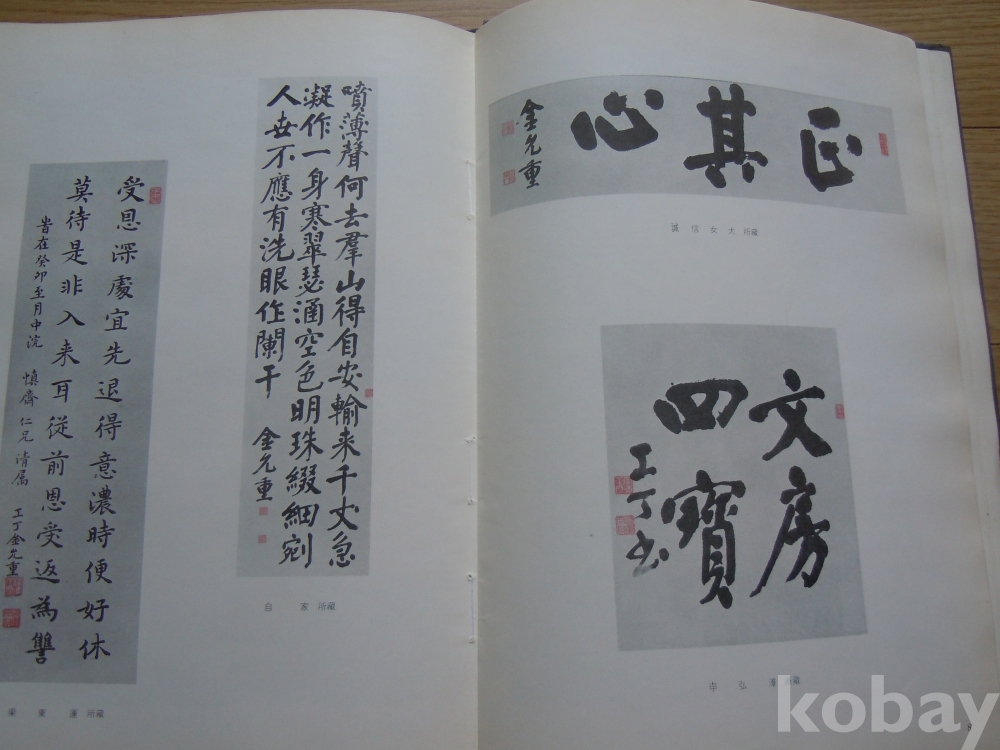 受恩深處宜先退得意濃時便好休
莫待是非入来耳從前恩受返為讐
旹在癸卯至月中浣 慎齋仁兄清属 工丁金允重
東 所藏
噴薄聲何去羣山得自安輸来千丈急
凝作一身寒翠瑟涵空色明珠綴細剜
人世不應有洗眼作闌干 金允重
自家 所藏
正其心
金允重
誠信女大 所藏
文房
四寶
工丁书
弘 所藏
kobay